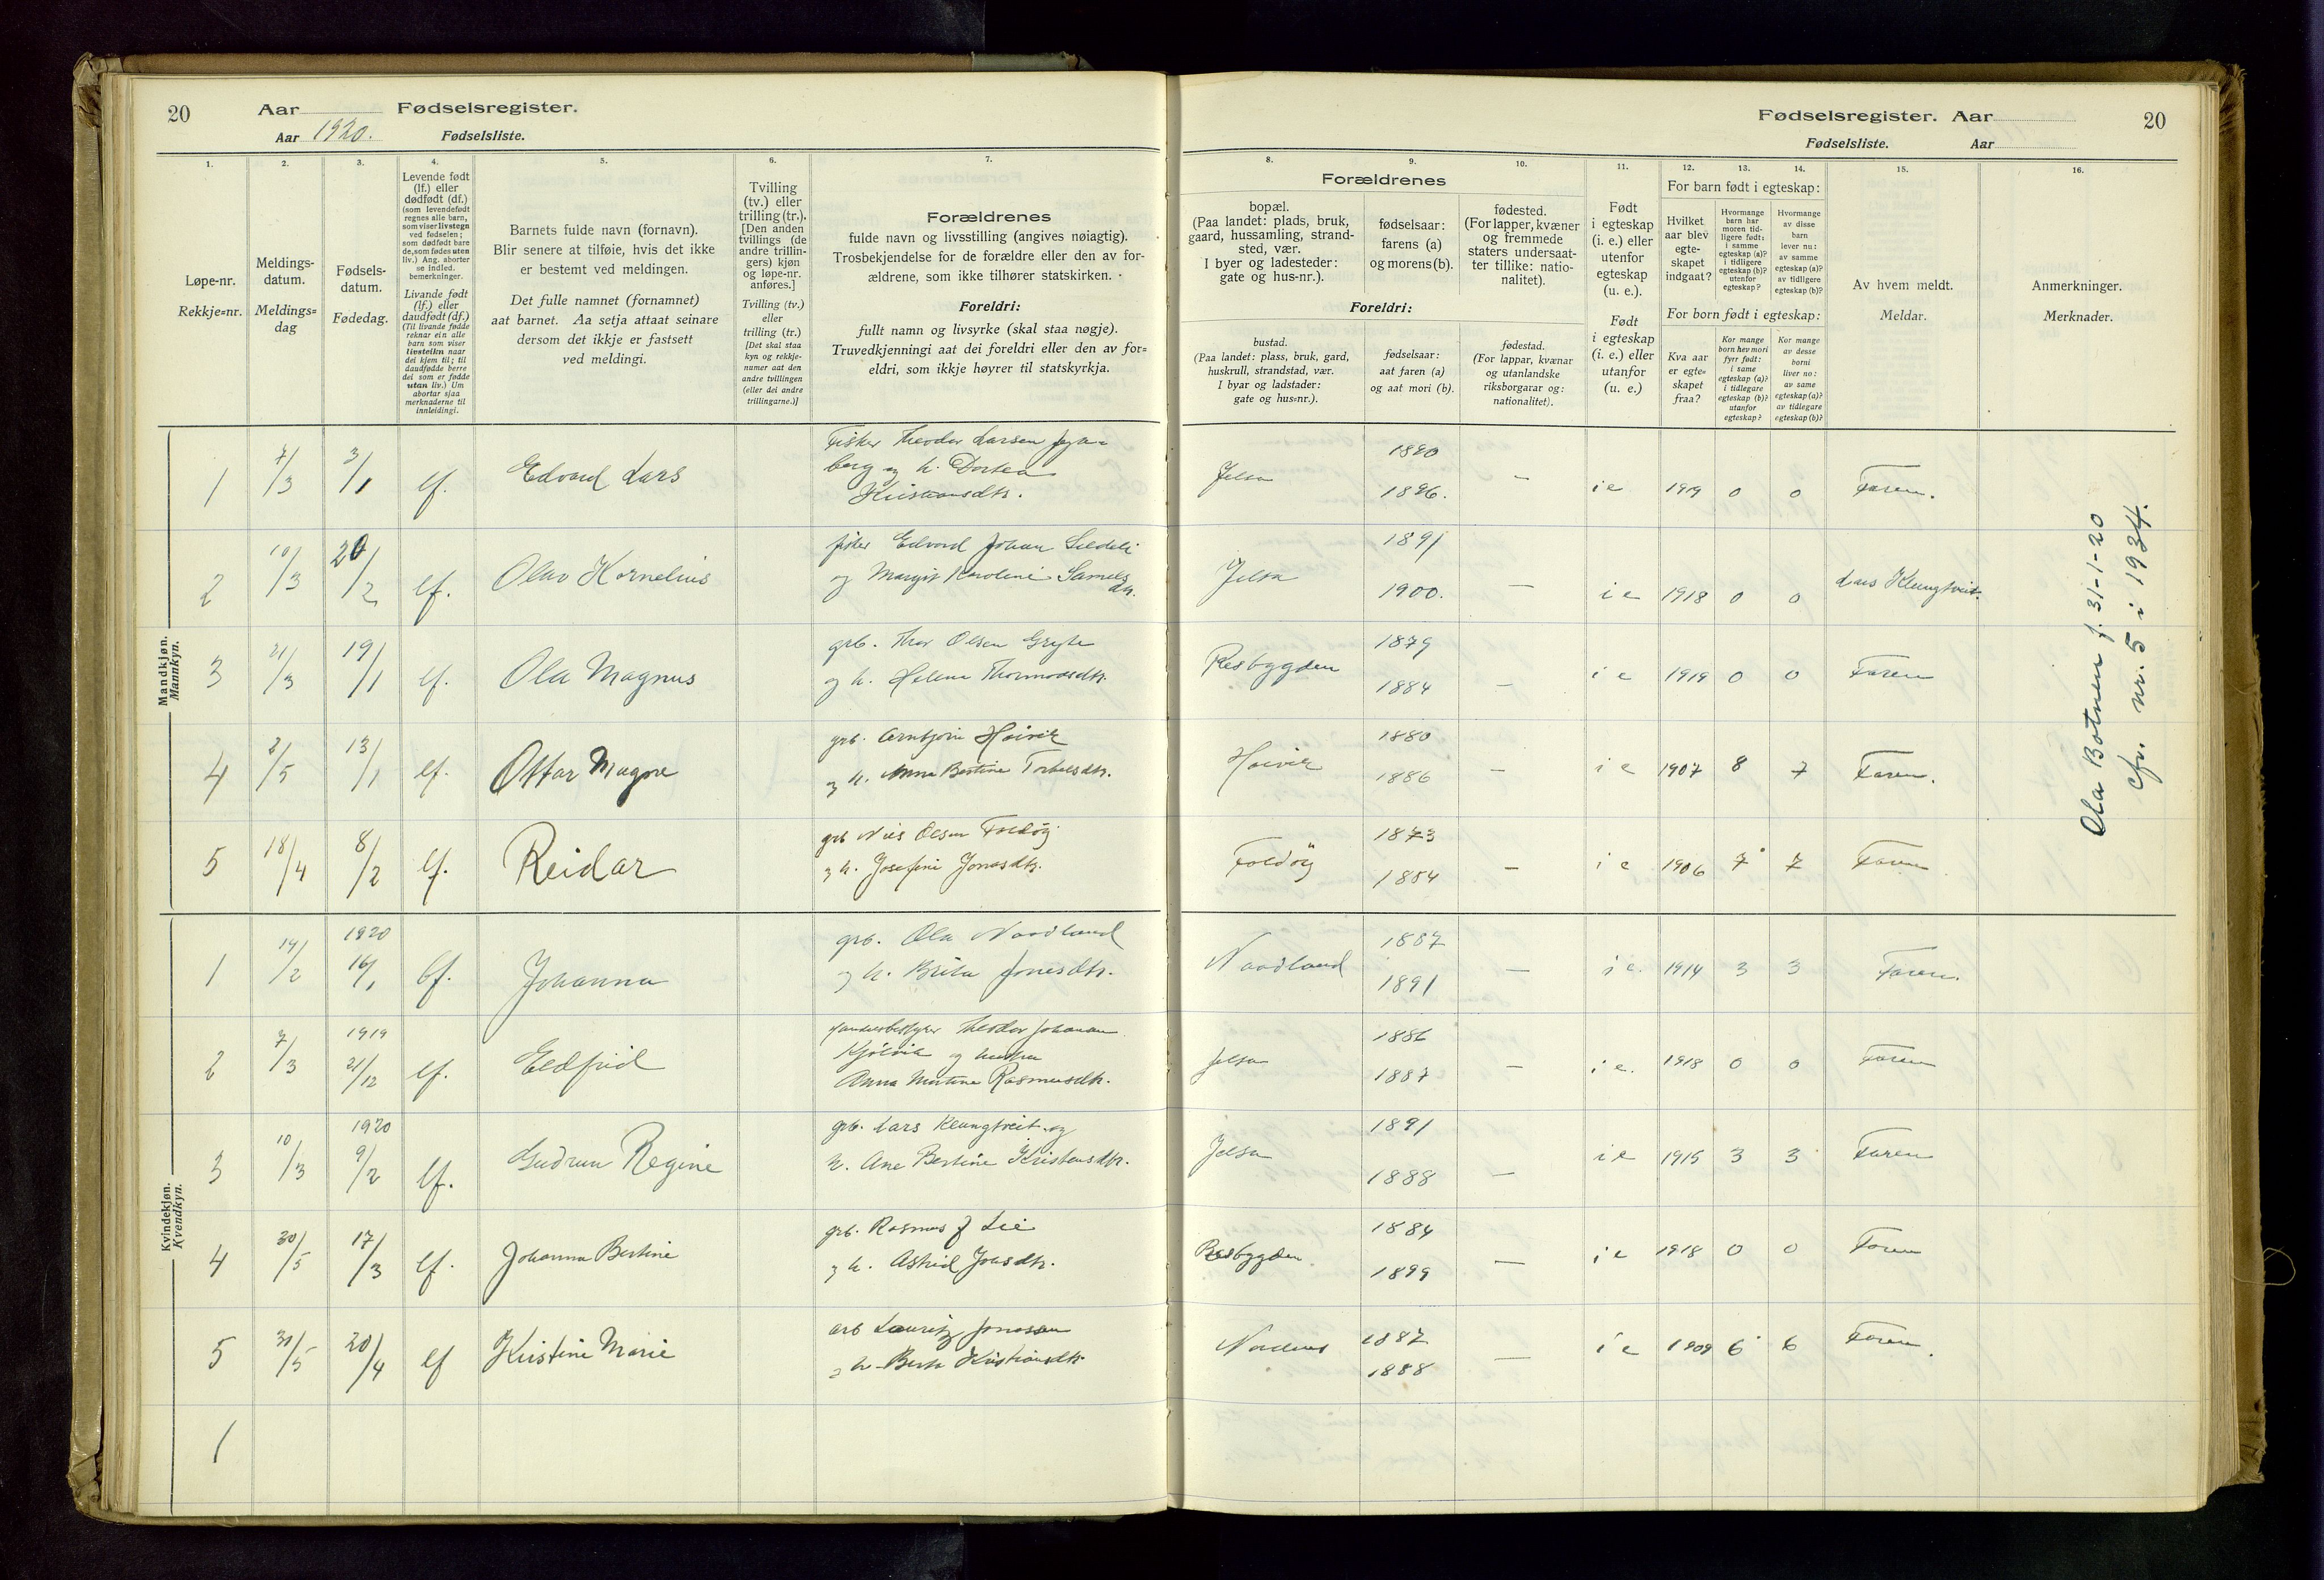 20
Aar Fødselsregister.
Aar 1920. Fødselsliste.
1.
2.
3.
4.
5.
6.
7.
Løpe-nr.
Rekkje=nr.
Meldings-
datum.
Meldings=
dag
Fødsels-
datum.
Fødedag.
Levende født
(lf.) eller
dødfødt (df.)
(som levendefødt
regnes alle barn,
som viser livstegn
ved fødselen;
som dødfødt bare
de, som fødes uten
liv.) Ang. aborter
se indled.
bemerkninger.
Livande født
(lf.) eller
daudfødt (df.)
(Til livande fødde
reknar ein alle
barn som viser
livsteikn naar
dei kjem til; til
daudfødde berre
dei som er fødde
utan liv.) Um
abortar sjaa
merknaderne til
innleidingi.
Barnets fulde navn (fornavn).
Blir senere at tilføie, hvis det ikke
er bestemt ved meldingen.
Det fulle namnet (fornamnet)
aat barnet. Aa setja attaat seinare
dersom det ikkje er fastsett
ved meldingi.
Tvilling
(tv.) eller
trilling (tr.).
[Den anden
tvillings (de
andre trillin-
gers) kjøn
og løpe-nr.
anføres.]
Tvilling (tv.)
eller
trilling (tr.)
[Det skal staa
kyn og rekkje-
numer aat den
andre tvillingen
(eller dei andre
trillingarne.)]
Forældrenes
fulde navn og livsstilling (angives nøiagtig).
Trosbekjendelse for de forældre eller den av for-
ældrene, som ikke tilhører statskirken.
Foreldri:
fullt namn og livsyrke (skal staa nøgje).
Truvedkjenningi aat dei foreldri eller den av for=
eldri, som ikkje høyrer til statskyrkja.
Fødselsregister. Aar
20
Fødselsliste. Aar
8.
9.
10.
11.
12.
13.
14.
15.
16.
Forældrenes
bopæl.
(Paa landet: plads, bruk,
gaard, hussamling, strand-
sted, vær.
I byer og ladesteder:
gate og hus-nr.).
fødselsaar:
farens (a)
og morens (b).
fødested.
(For lapper, kvæner
og fremmede
staters undersaat-
ter tillike: natio-
nalitet).
Foreldri:
bustad.
(Paa landet: plass, bruk, gard,
huskrull, strandstad, vær.
I byar og ladstader:
gate og hus=nr.).
fødselsaar:
aat faren (a)
og aat mori (b).
fødestad.
(For lappar, kvænar
og utanlandske
riksborgarar og:
nationalitet).
Født
i egteskap
(i. e.) eller
utenfor
egteskap
(u. e.).
Født
i egteskap
(i. e.) eller
utanfor
(u. e.)
For barn født i egteskap:
Hvilket
aar blev
egte-
skapet
indgaat?
Hvormange
barn har
moren tid-
ligere født:
i samme
egteskap (a)?
i tidligere
egteskap (b)?
utenfor
egteskap?
Hvormange
av disse
barn
lever nu:
av samme
egteskap (a)?
av tidligere
egteskap (b)?
For born født i egteskap:
Kva aar
er egte=
skapet
fraa?
Kor mange
born hev mori
fyrr født:
i same
egteskap (a)?
i tidlegare
egteskap (b)?
utanfor
egteskap?
Kor mange
av desse
borni
liver no:
av same
egteskap (a)?
av tidlegare
egteskap (b)?
Av hvem meldt.
Meldar.
Anmerkninger.
Merknader.
Mandkjøn.
Mannkyn.
1 7/3 3/1 lf. Edvard Lars
Fisker Theodor Larsen
berg og h. Dortea
Kristiansdtr.
Jelsa 1890 1896. — i e 1919 0 0 Faren.
2 10/3 20/2 lf. Olav Kornelius
fisker Edvard Johan
og Margit Karoline Samuels
dtr.
Jelsa 1891 1900. — i e 1918 0 0 Lars Klungtveit.
3 21/3 19/1 lf. Ola Magnus
grb. Thor Olsen
og h. Helene Thormodsdtr.
Resbygden 1879 1884 — i e 1919 0 0 Faren
4 2/5 13/1 lf. Ottar Magne
grb. Arnbjørn Høivik
og h. Anna Bertine Torkelsdtr.
Høivik 1880 1886 — i e 1907 8 7 Faren.
5 18/4 8/2 lf. Reidar
grb Nils Olsen Foldøy
og h. Josefine Jonasdtr.
Foldøy 1873 1884 — i e 1906 7 7 Faren
Ola Botnen f. 31-1-20
cfr. nr. 5 i 1934.
Kvindekjøn.
Kvendkyn.
1 14/2 1920 16/1 lf. Johanna
grb. Ola Nordland
og h. Brita Jonesdtr.
Nordland 1887 1891 — i e. 1914 3 3 Faren.
2 7/3 1919 21/12 lf. Eldfrid
Theodor Johannan
Kjølvik og hustru
Anna Martine Rasmusdtr.
Jelsa 1886 1887 — i e. 1918 0 0 Faren
3 10/3 1920 9/2 lf. Gudrun Regine
grb. Lars Klungtveit og
h. Ane Bertine Kristensdtr.
Jelsa 1891 1888 — i e 1915 3 3 Faren
4 30/5 17/3 lf. Johanna Bertine
grb. Rasmus J Lie
og h. Astrid Jonsdtr.
Resbygden 1884 1899 — i e 1918 0 0 Faren
5 31/5 20/4 lf Kristine Marie
arb Lauritz Jonassen
og h. Berta Kristiansdtr.
1887 1888 — i e 1909 6 6 Faren.
1